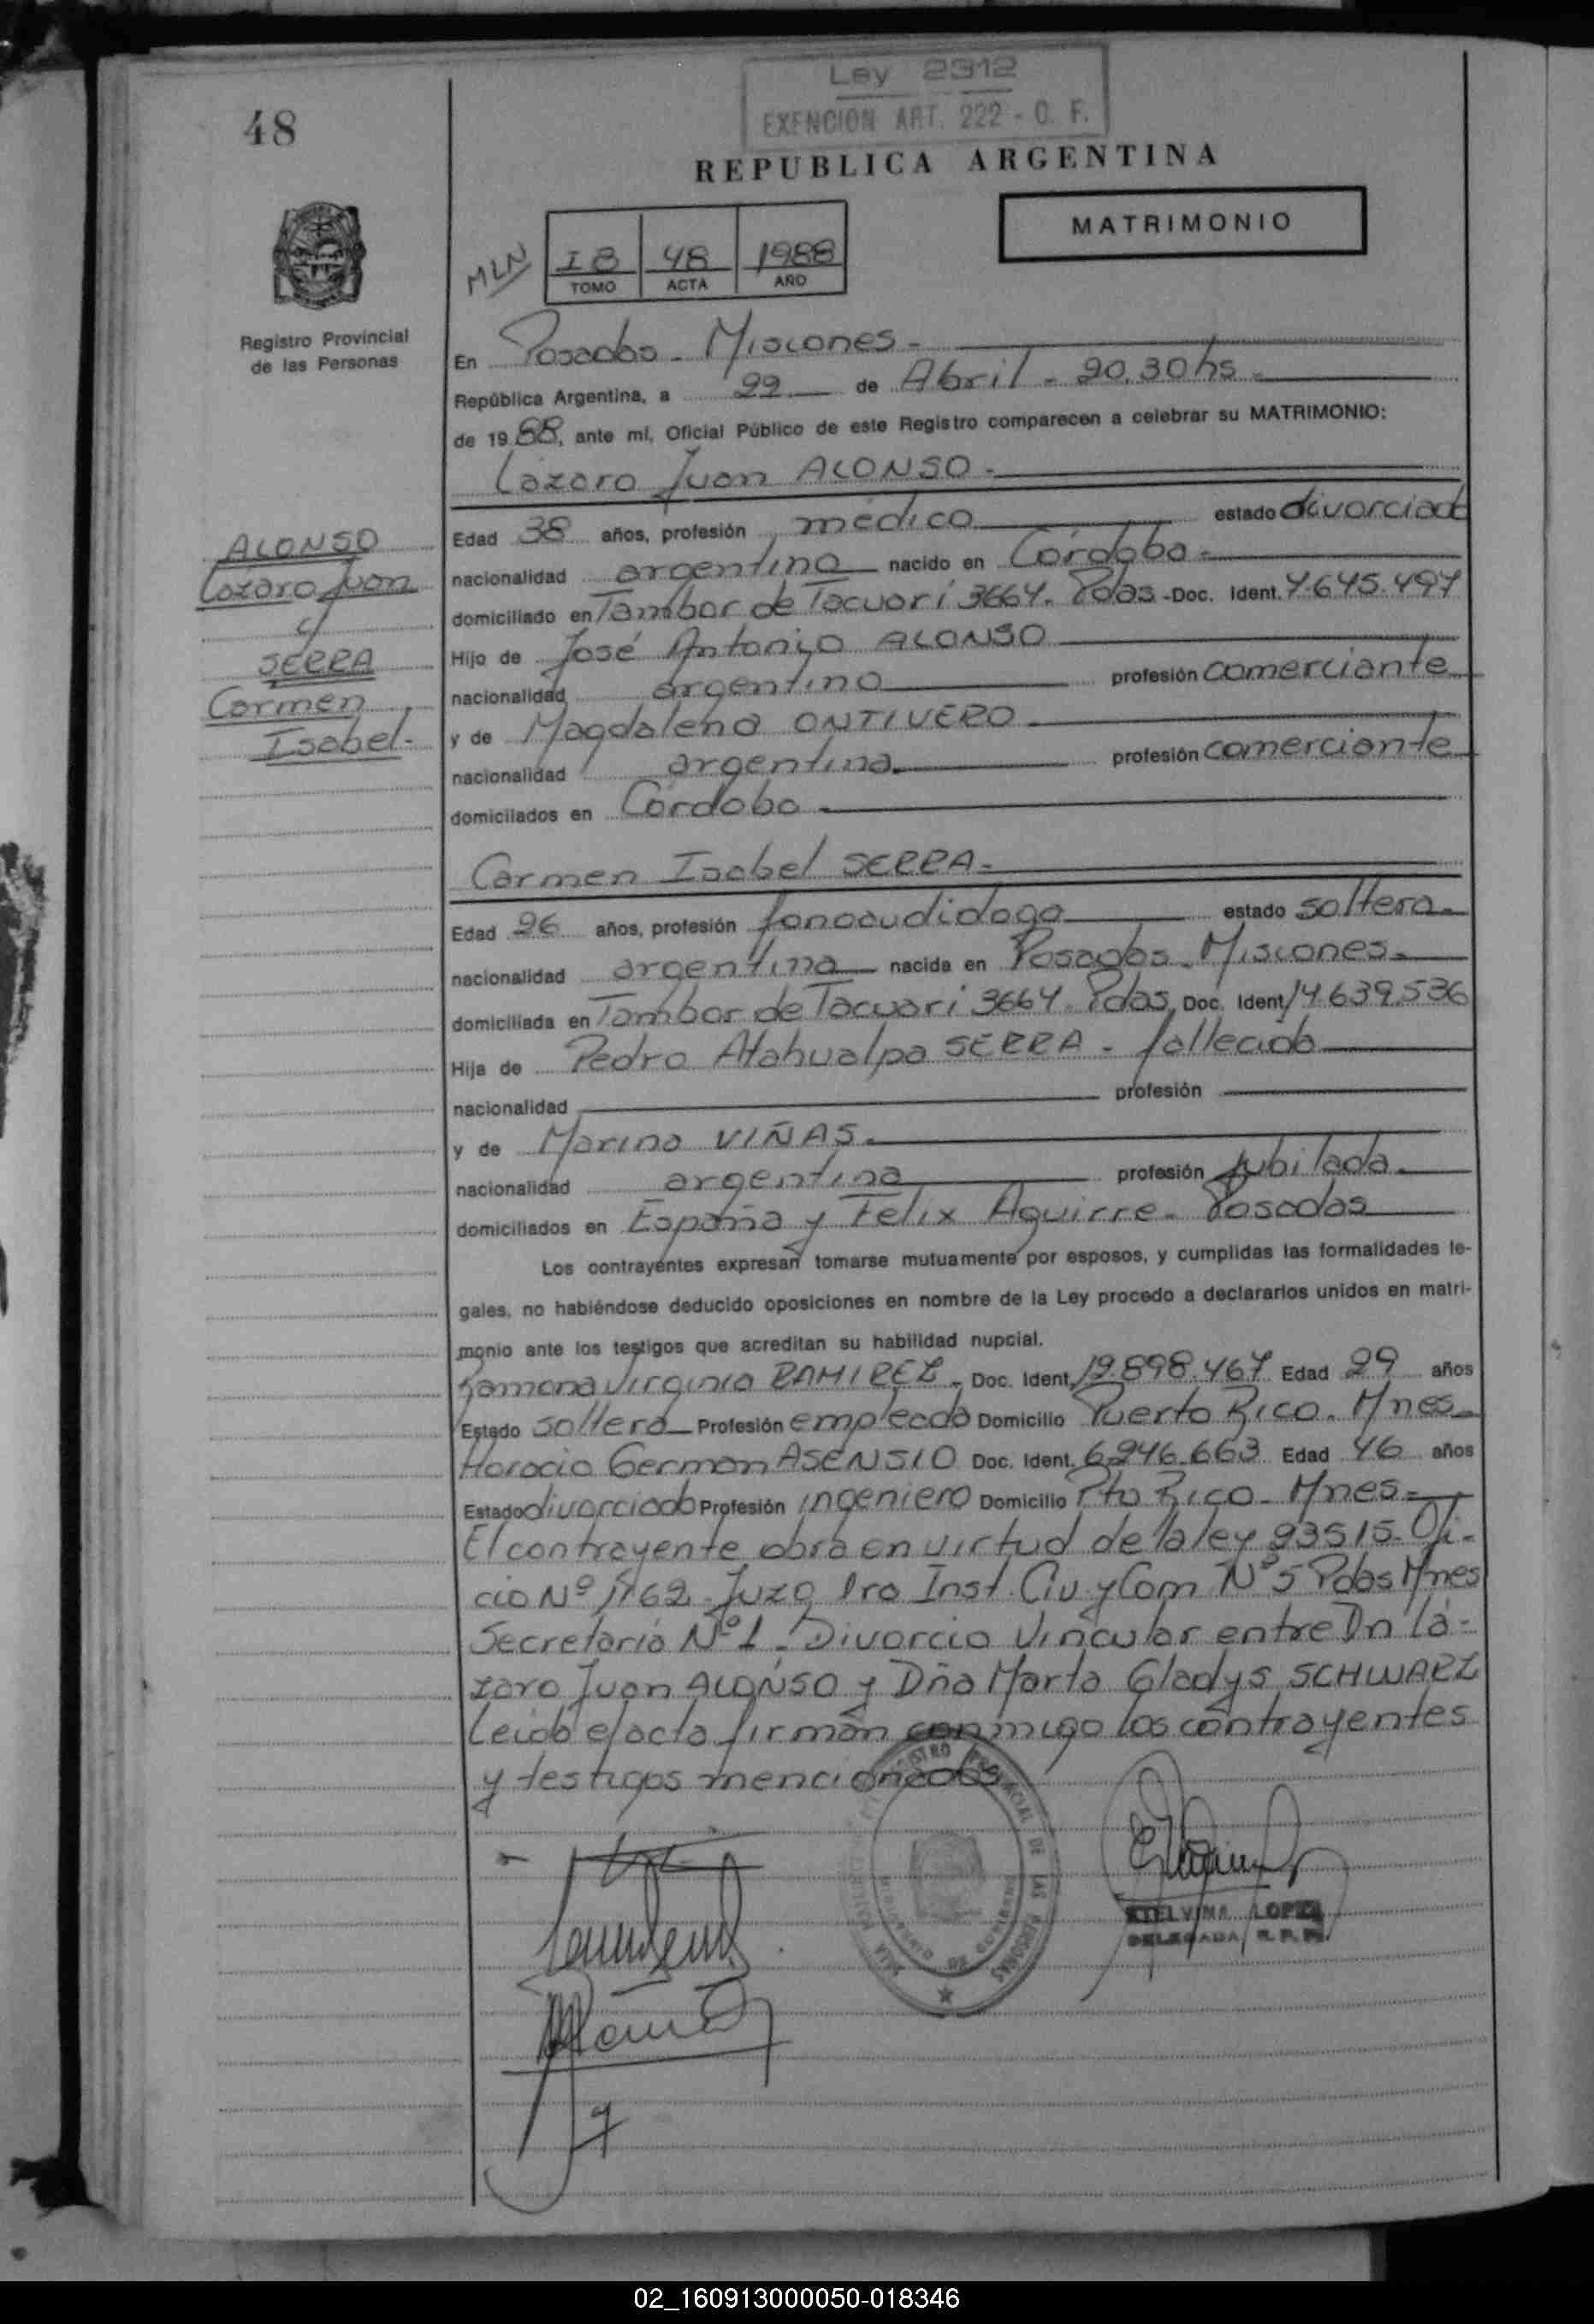 Ley 2312
EXENCION ART. 222 - C. F.
48
REPUBLICA ARGENTINA
MATRIMONIO
MLN
I B 48 1988
TOMO ACTA AÑO
Registro Provincial
de las Personas
En Posadas - Misiones -
República Argentina, a 22 de Abril - 20.30 hs -
de 1988, ante mí, Oficial Público de este Registro comparecen a celebrar su MATRIMONIO:
Lázaro Juan ALONSO -
ALONSO
Lázaro Juan
y
SERRA
Carmen
Isabel -
Edad 38 años, profesión médico estado divorciado
nacionalidad argentina nacido en Córdoba -
domiciliado en Tambor de Tacuarí 3664 - Pdas - Doc. Ident. 7.645.497
Hijo de José Antonio ALONSO
nacionalidad argentino profesión comerciante
y de Magdalena ONTIVERO
nacionalidad argentina profesión comerciante
domiciliados en Córdoba -
Carmen Isabel SERRA -
Edad 26 años, profesión fonoaudióloga estado soltera -
nacionalidad argentina nacida en Posadas - Misiones -
domiciliada en Tambor de Tacuarí 3664 - Pdas, Doc. Ident. 14.639.536
Hija de Pedro Atahualpa SERRA - fallecido
nacionalidad profesión
y de Marina VIÑAS -
nacionalidad argentina profesión jubilada -
domiciliados en España y Felix Aguirre - Posadas
Los contrayentes expresan tomarse mutuamente por esposos, y cumplidas las formalidades le-
gales, no habiéndose deducido oposiciones en nombre de la Ley procedo a declararlos unidos en matri-
monio ante los testigos que acreditan su habilidad nupcial.
Ramona Virginia RAMIREZ - Doc. Ident. 12.898.467 Edad 29 años
Estado soltera Profesión empleada Domicilio Puerto Rico - Mnes -
Horacio German ASENSIO Doc. Ident. 6.246.663 Edad 46 años
Estado divorciado Profesión ingeniero Domicilio Pto Rico - Mnes -
El contrayente obra en virtud de la ley 23515 - Ofi-
cio Nº 1162 - Juzg 1ro Inst. Civ y Com Nº 5 Pdas Mnes
Secretaría Nº 1 - Divorcio Vincular entre Dn Lá-
zaro Juan ALONSO y Dña Marta Gladys SCHWARZ
Leida el acta firman conmigo los contrayentes
y testigos mencionados
REGISTRO PROVINCIAL DE LAS PERSONAS
MINISTERIO DE GOBIERNO
ETELVINA LOPEZ
DELEGADA R. P. P.
02_160913000050-018346